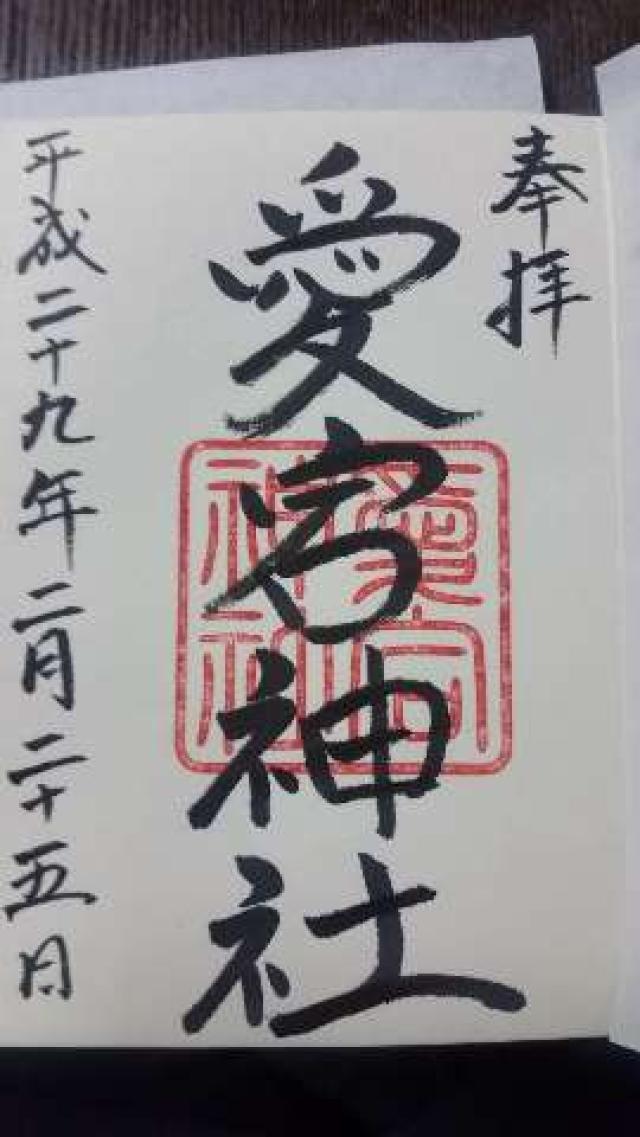 奉拝
愛宕神社
愛宕神社
平成二十九年二月二十五日